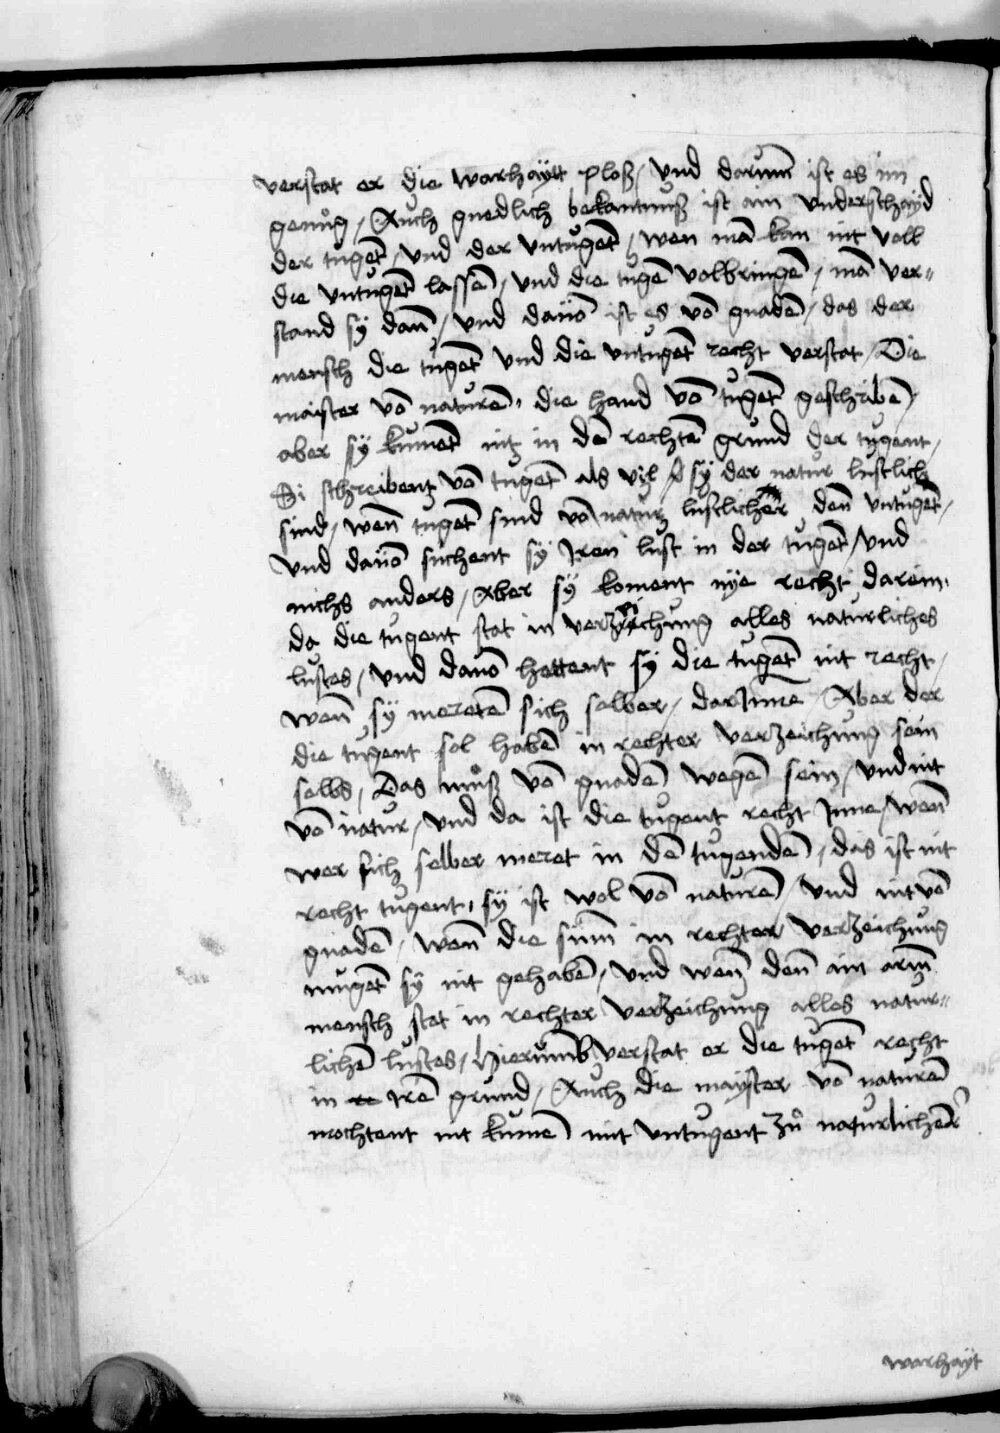 verstat er die warhaytt ploß / Vnd darumm ist es im
genuͦg / Auch gnedlich bekantnuß ist ain Vnderschayd
der tugēt / vnd der vntugēt / wen mā kan nit voll
die vntugēt lassē / vnd die tugē volbringē / mā ver=
stand sÿ dañ / vnd dauō ist es vō gnadē / das der
mensch die tugēt Vnd die vntugēt recht verstat / Die
maister vō naturē / die hand vō tugēt geschribē /
aber sÿ kumēt nit in dē rechtē grund der tugent /
Si schreibent vō tugēt als vil sÿ der natur lustlich
sind / wenn tugēt sind vō natur lustlicher denn vntugēt /
Vnd dauō suchent sÿ Jren lust in der tugēt / vnd
nichs anders / Aber sÿ koment nÿe recht darein /
da die tugent stat in verzeichung alles naturliches
lustes / vnd dauō hettent sÿ die tugēt nit recht /
wenn sÿ meretē sich selber / darJnne / Aber der
die tugent sol habē in rechter verzeichung sein
selbs / Das muͦß vō gnadē wegē sein / vnd nit
vō natur / vnd da ist die tugent recht Jnne / wenn
wer sich selber meret in dē tugendē / das ist nit
recht tugent / sÿ ist wol vō naturē / vnd nit vō
gnadē / wenn die sinn in rechter verzeichung
mugēt sÿ nit gehabē / vnd wenn denn ain arm
mensch stet in rechter verzeichung alles natur=
lichē lustes / Hierumb verstat er die tugēt recht
in Jrē grund / Auch die mayster vō naturē
mochtent nit kumē mit vntugent zuͦ naturlicher
warhayt